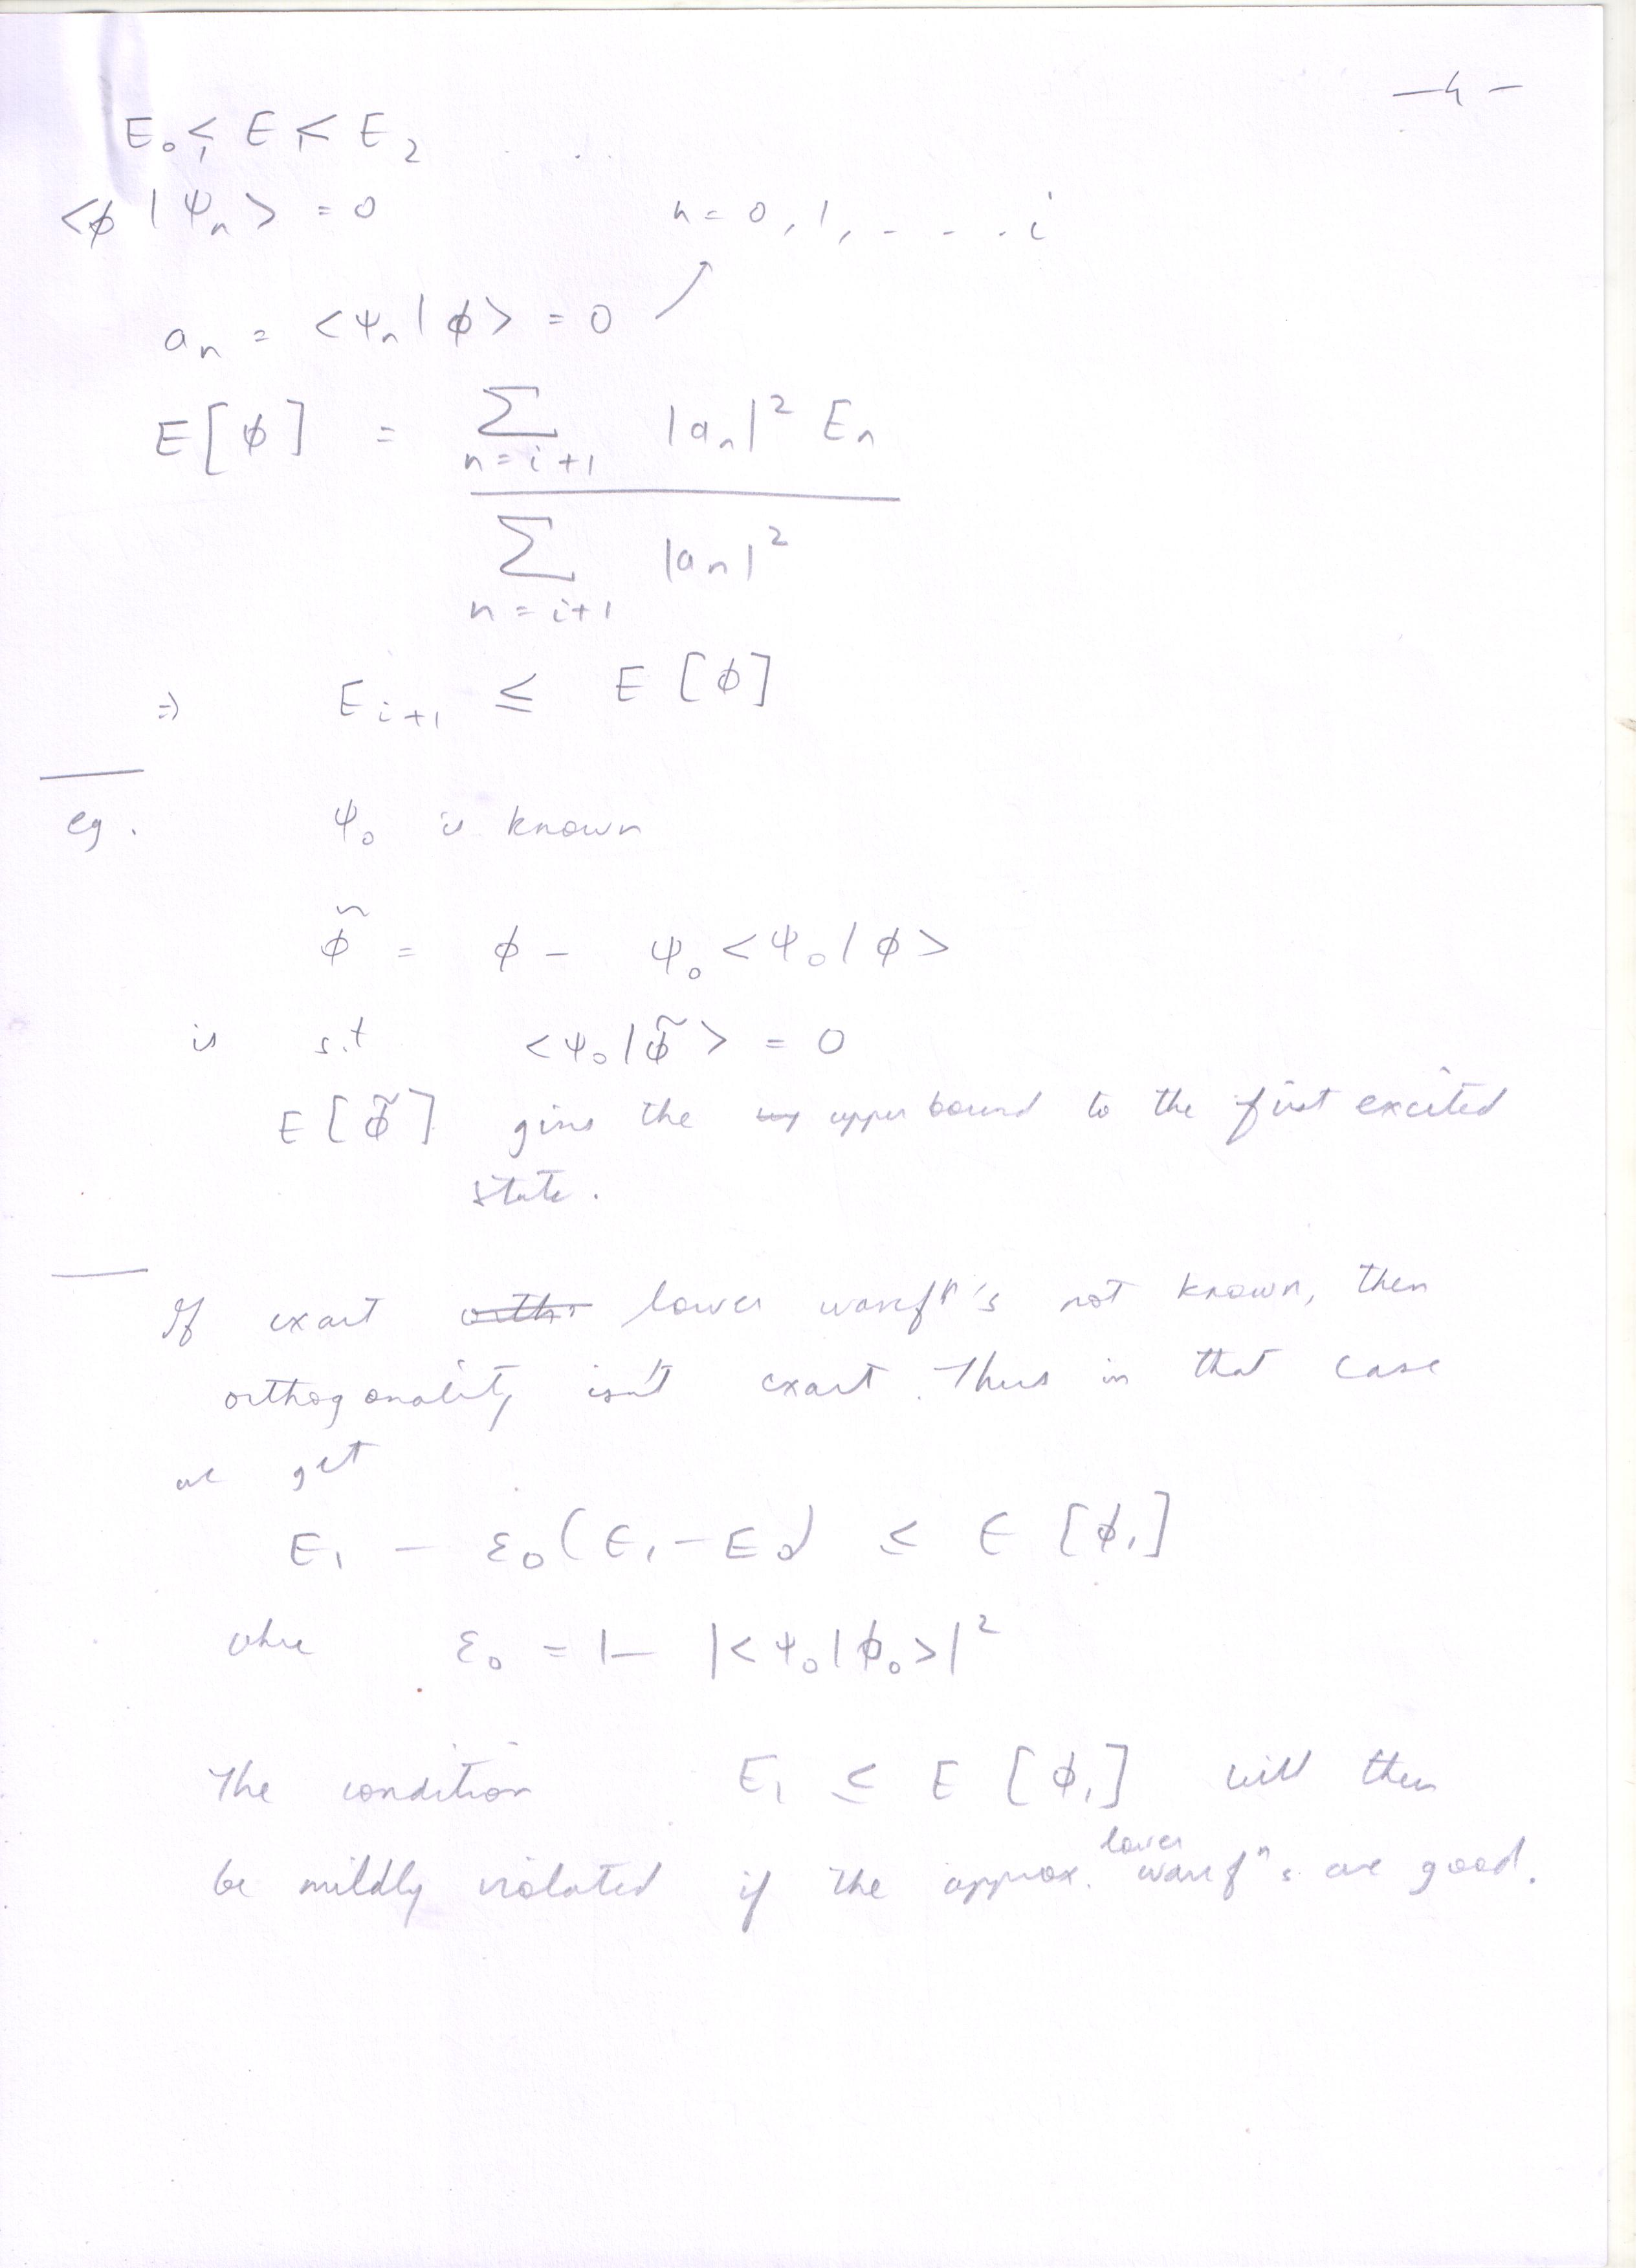 —4—
E₀ ≤ E₁ ≤ E₂ . . .
<φ|Ψₙ> = 0 n = 0, 1, - - - . i
aₙ = <Ψₙ|φ> = 0 ↗
E[φ] = ∑ₙ₌ᵢ₊₁ |aₙ|² Eₙ
∑ₙ₌ᵢ₊₁ |aₙ|²
⇒ Eᵢ₊₁ ≤ E[φ]
eg. Ψ₀ is known
φ̃ = φ - Ψ₀<Ψ₀|φ>
is s.t <Ψ₀|φ̃> = 0
E[φ̃] gives the upper bound to the first excited
state.
If exact lower wavefⁿ's not known, then
orthogonality isn't exact. Thus in that case
we get
E₁ - ε₀(E₁-E₀) ≤ E[φ₁]
where ε₀ = 1- |<Ψ₀|φ₀>|²
The condition E₁ ≤ E[φ₁] will then
be mildly violated if the approx. lower wavefⁿs are good.